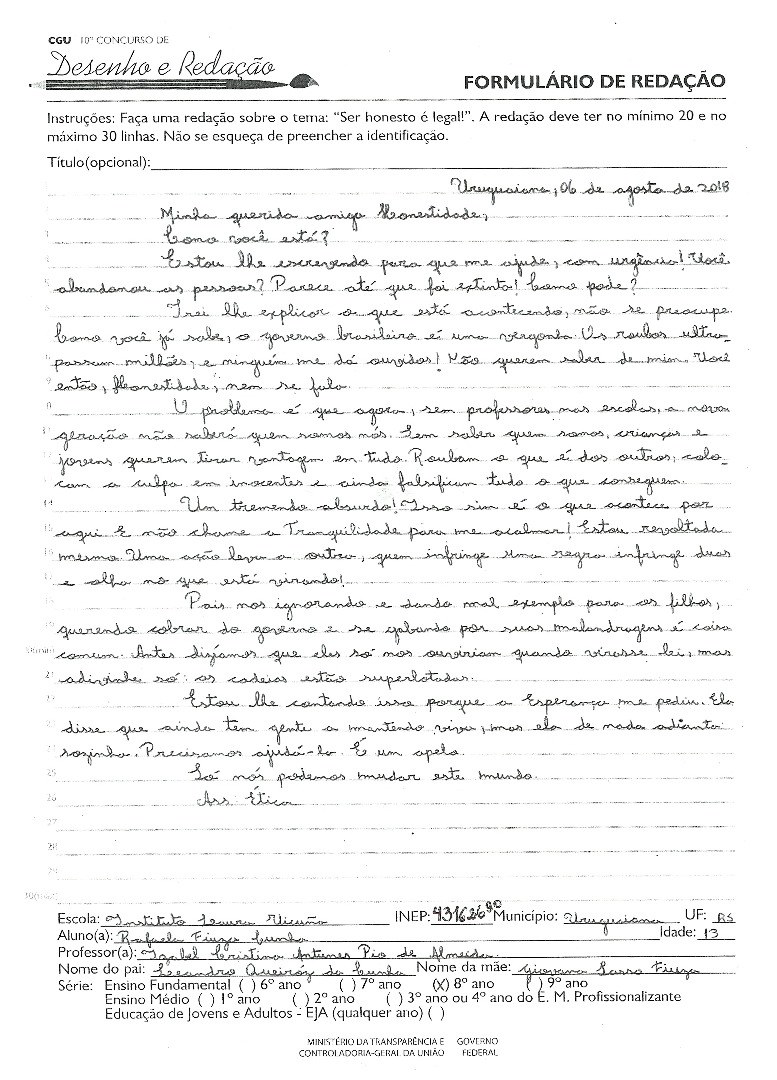 CGU 10º CONCURSO DE
Desenho e Redação
FORMULÁRIO DE REDAÇÃO
Instruções: Faça uma redação sobre o tema: "Ser honesto é legal!". A redação deve ter no mínimo 20 e no
máximo 30 linhas. Não se esqueça de preencher a identificação.
Título(opcional):
Uruguaiana, 06 de agosto de 2018
Minha querida amiga Honestidade,
Como você está?
Estou lhe escrevendo para que me ajude, com urgência! Você
abandonou as pessoas? Parece até que foi extinta! Como pode?
Irei lhe explicar o que está acontecendo, não se preocupe.
Como você já sabe, o governo brasileiro é uma vergonha. Os roubos ultra-
passam milhões, e ninguém me dá ouvidos! Não querem saber de mim. Você
então, Honestidade, nem se fala.
O problema é que agora, sem professores nas escolas, a nova
geração não saberá quem somos nós. Sem saber quem somos, crianças e
jovens querem tirar vantagem em tudo. Roubam o que é dos outros, colo-
cam a culpa em inocentes e ainda falsificam tudo o que conseguem.
Um tremendo absurdo! Isso sim é o que acontece por
aqui. E não chame a Tranquilidade para me acalmar! Estou revoltada
mesmo. Uma ação leva a outra, quem infringe uma regra infringe duas
e olha no que está virando!
Pais nos ignorando e dando mal exemplo para os filhos,
querendo cobrar do governo e se gabando por suas malandragens é coisa
comum. Antes dizíamos que eles só nos ouviriam quando virasse lei, mas
adivinhe só: as cadeias estão superlotadas.
Estou lhe contando isso porque a Esperança me pediu. Ela
disse que ainda tem gente a mantendo viva, mas ela de nada adianta
sozinha. Precisamos ajudá-la. É um apelo.
Só nós podemos mudar este mundo.
Ass. Ética
Escola: Instituto Laura Vicuña INEP: Município: Uruguaiana UF: RS
Aluno(a): Rafaela Fiuza Cunha Idade: 13
Professor(a): Izabel Cristina Antunes Pio de Almeida
Nome do pai: Leandro Queiróz da Cunha Nome da mãe: Giovana Fiuza
Série: Ensino Fundamental ( ) 6º ano ( ) 7º ano (X) 8º ano ( ) 9º ano
Ensino Médio ( ) 1º ano ( ) 2º ano ( ) 3º ano ou 4º ano do E. M. Profissionalizante
Educação de Jovens e Adultos - EJA (qualquer ano) ( )
MINISTÉRIO DA TRANSPARÊNCIA E GOVERNO
CONTROLADORIA-GERAL DA UNIÃO FEDERAL